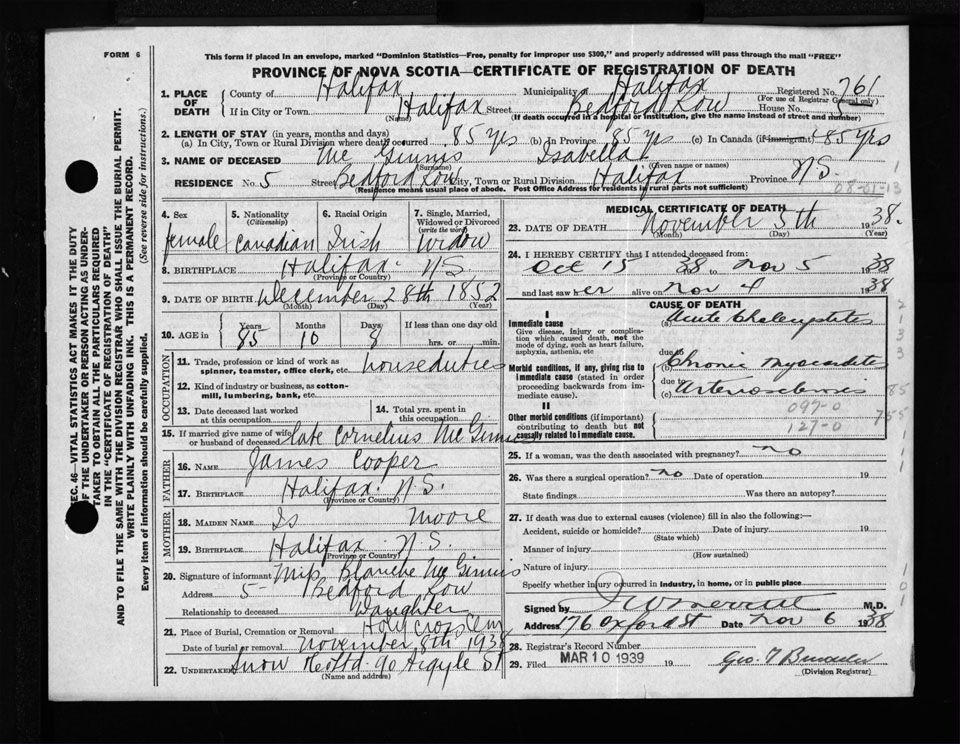 FORM 6
This form if placed in an envelope, marked "Dominion Statistics—Free, penalty for improper use $300," and properly addressed will pass through the mail "FREE"
PROVINCE OF NOVA SCOTIA—CERTIFICATE OF REGISTRATION OF DEATH
SEC. 46—VITAL STATISTICS ACT MAKES IT THE DUTY
OF THE UNDERTAKER OR PERSON ACTING AS UNDER-
TAKER TO OBTAIN ALL THE PARTICULARS REQUIRED
IN THE "CERTIFICATE OF REGISTRATION OF DEATH"
AND TO FILE THE SAME WITH THE DIVISION REGISTRAR WHO SHALL ISSUE THE BURIAL PERMIT.
WRITE PLAINLY WITH UNFADING INK. THIS IS A PERMANENT RECORD.
Every item of information should be carefully supplied. (See reverse side for instructions.)
1. PLACE OF DEATH
County of Halifax Municipality Halifax Registered No. 761
(For use of Registrar General only)
If in City or Town Halifax Street Bedford Row House No. 5
(Name) (If death occurred in a hospital or institution, give the name instead of street and number)
2. LENGTH OF STAY (in years, months and days)
(a) In City, Town or Rural Division where death occurred 85 yrs (b) In Province 85 yrs (c) In Canada (if immigrant) 85 yrs
3. NAME OF DECEASED Mc Ginnis Isabella
(Surname) (Given name or names)
RESIDENCE No. 5 Street Bedford Row City, Town or Rural Division Halifax Province N.S.
(Residence means usual place of abode. Post Office Address for residents in rural parts not sufficient)
08-01-13
4. Sex female
5. Nationality (Citizenship) Canadian
6. Racial Origin Irish
7. Single, Married, Widowed or Divorced (write the word) Widow
8. BIRTHPLACE Halifax N.S.
(Province or Country)
9. DATE OF BIRTH December 28th 1852
(Month) (Day) (Year)
10. AGE in Years 85 Months 10 Days 8 If less than one day old hrs. or min.
OCCUPATION
11. Trade, profession or kind of work as spinner, teamster, office clerk, etc. houseduties
12. Kind of industry or business, as cotton-mill, lumbering, bank, etc.
13. Date deceased last worked at this occupation
14. Total yrs. spent in this occupation
15. If married give name of wife or husband of deceased late Cornelius Mc Ginnis
FATHER
16. NAME James Cooper
17. BIRTHPLACE Halifax N.S.
(Province or Country)
MOTHER
18. MAIDEN NAME Is Moore
19. BIRTHPLACE Halifax N.S.
(Province or Country)
20. Signature of informant Miss Blanche Mc Ginnis
Address 5 - Bedford Row
Relationship to deceased Daughter
21. Place of Burial, Cremation or Removal Holy Cross Cem
Date of burial or removal November 8th 1938
22. UNDERTAKER Snow & Co Ltd 90 Argyle St
(Name and address)
MEDICAL CERTIFICATE OF DEATH
23. DATE OF DEATH November 5th 1938.
(Month) (Day) (Year)
24. I HEREBY CERTIFY that I attended deceased from:
Oct 15 38 to Nov 5 1938
and last saw her alive on Nov 4 1938
CAUSE OF DEATH
I
Immediate cause
Give disease, injury or complication which caused death, not the mode of dying, such as heart failure, asphyxia, asthenia, etc
(a) Acute Cholecystitis
due to
Morbid conditions, if any, giving rise to immediate cause (stated in order proceeding backwards from immediate cause)
(b) Chronic Myocarditis
due to
(c) Arteriosclerosis
II
Other morbid conditions (if important) contributing to death but not causally related to immediate cause.
097-0
127-0
25. If a woman, was the death associated with pregnancy? no
26. Was there a surgical operation? no Date of operation 19
State findings Was there an autopsy?
27. If death was due to external causes (violence) fill in also the following:—
Accident, suicide or homicide? Date of injury 19
(State which)
Manner of injury
(How sustained)
Nature of injury
Specify whether injury occurred in industry, in home, or in public place
Signed by Merritt M.D.
Address 176 Oxford St Date Nov 6 1938
28. Registrar's Record Number
29. Filed MAR 10 1939 19
(Division Registrar)